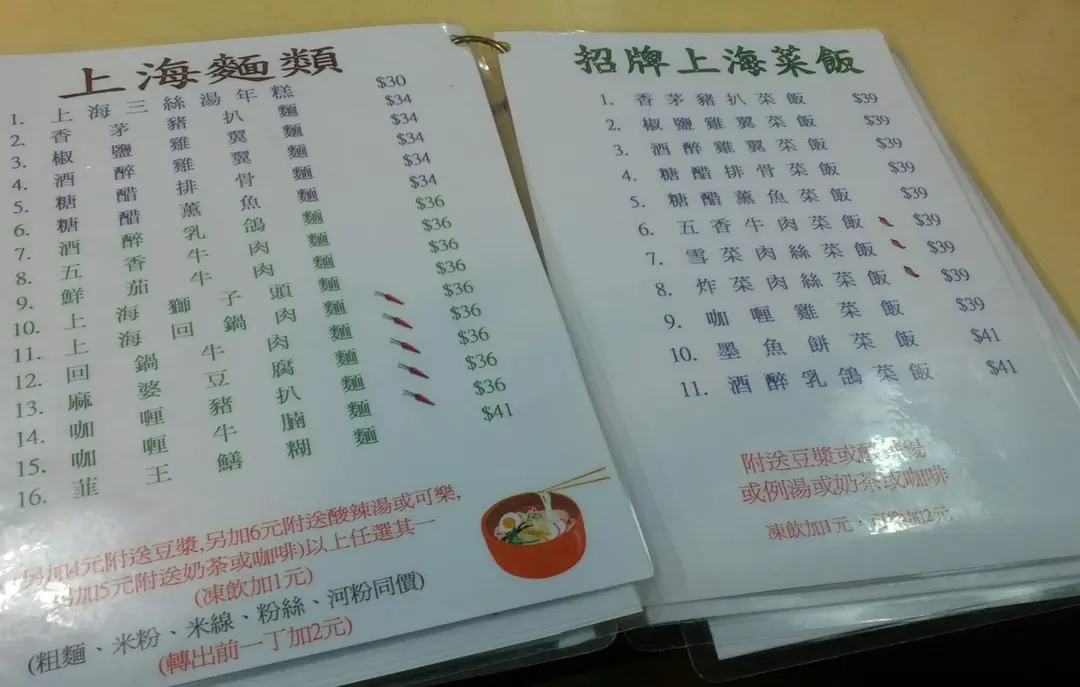 上海麵類
1. 上海三絲湯年糕 $30
2. 香茅豬扒麵 $34
3. 椒鹽雞翼麵 $34
4. 酒醉雞翼麵 $34
5. 糖醋排骨麵 $34
6. 糖醋薰魚麵 $34
7. 酒醉乳鴿麵 $36
8. 五香牛肉麵 $36
9. 鮮茄牛肉麵 $36
10. 上海獅子頭麵 $36
11. 上海回鍋肉麵 $36
12. 回鍋牛肉麵 $36
13. 麻婆豆腐麵 $36
14. 咖喱豬扒麵 $36
15. 咖喱牛腩麵 $36
16. 韮王鱔糊麵 $41
另加4元附送豆漿,另加6元附送酸辣湯或可樂,
另加5元附送奶茶或咖啡)以上任選其一
(凍飲加1元)
(粗麵、米粉、米線、粉絲、河粉同價)
(轉出前一丁加2元)
招牌上海菜飯
1. 香茅豬扒菜飯 $39
2. 椒鹽雞翼菜飯 $39
3. 酒醉雞翼菜飯 $39
4. 糖醋排骨菜飯 $39
5. 糖醋薰魚菜飯 $39
6. 五香牛肉菜飯 $39
7. 雪菜肉絲菜飯 $39
8. 炸菜肉絲菜飯 $39
9. 咖喱雞菜飯 $39
10. 墨魚餅菜飯 $41
11. 酒醉乳鴿菜飯 $41
附送豆漿或酸辣湯
或例湯或奶茶或咖啡
凍飲加1元，可樂加2元